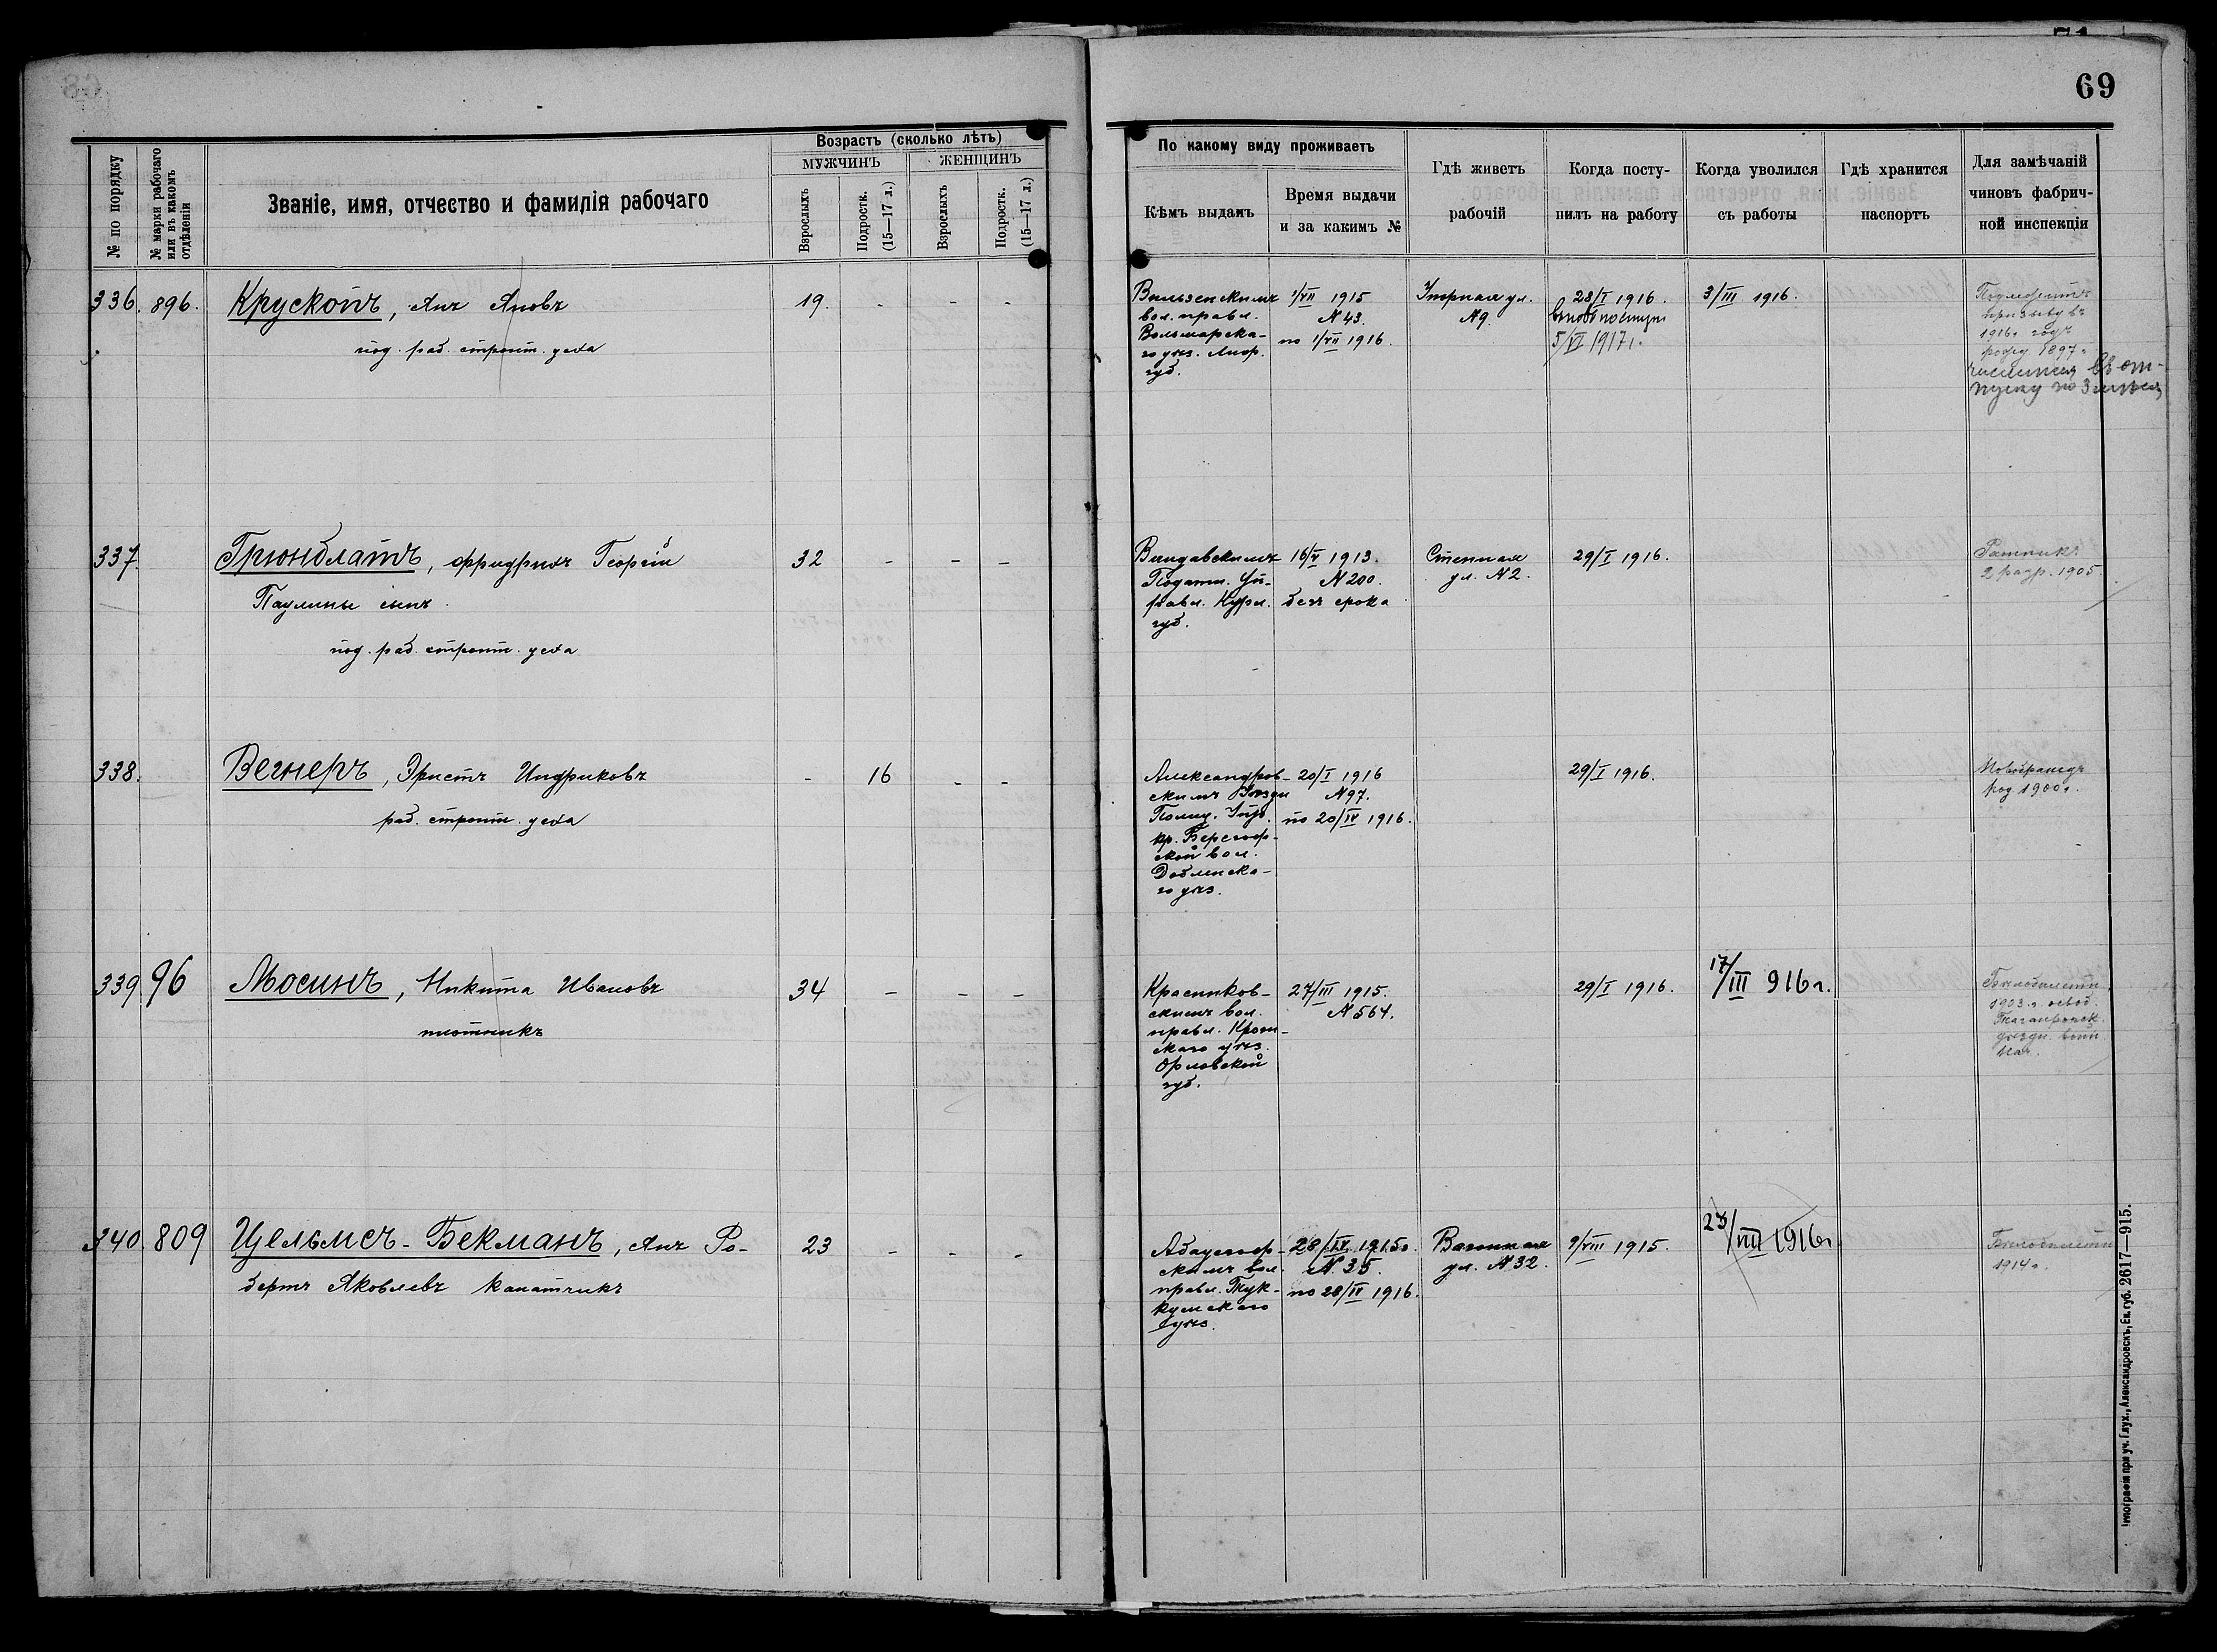 69
№ по порядку
№ марки рабочаго или въ какомъ отдѣленіи
Званіе, имя, отчество и фамилія рабочаго
Возрастъ (сколько лѣтъ)
МУЖЧИНЪ
ЖЕНЩИНЪ
Взрослыхъ
Подростк. (15—17 л.)
Взрослыхъ
Подростк. (15—17 л.)
По какому виду проживаетъ
Кѣмъ выданъ
Время выдачи
и за какимъ №
Гдѣ живетъ
рабочій
Когда посту-
пилъ на работу
Когда уволился
съ работы
Гдѣ хранится
паспортъ
Для замѣчаній
чиновъ фабрич-
ной инспекціи
336. 896. Крускопъ, Янъ Яновъ 19. - - -
под. раб. строит. цеха
вол. правл.
Вольмарска-
го уѣз. Лифл.
губ.
1/VII 1915
N 43.
по 1/VII 1916.
ул.
N 9.
28/I 1916.
вновь поступ
5/VI 1917г.
3/III 1916.
призыву въ
1916г. годъ
рожд 1897г.
числится въ от-
пуску по
337. Грюнблатъ, Фридрихъ Георгій 32 - - -
Паулины сынъ.
под. раб. строит. цеха
Виндавскимъ
Податн. Уп-
равл. Курл.
губ.
16/V 1913.
N 200.
безъ срока
Степная
ул. N 2.
29/I 1916.
Ратникъ
2 разр. 1905.
338. Вегнеръ, Эрнстъ Индриковъ - 16 - -
раб. строит. цеха
Александров-
скимъ Уѣздн
Полиц. Упр.
кр. Бергоф-
ской вол.
Добленска-
го уѣз.
20/I 1916
N 97.
по 20/IV 1916.
29/I 1916.
Новобранецъ
род 1900г.
339 96 Мосинъ, Никита Ивановъ 34 - - -
плотникъ
Красников-
скимъ вол.
правл. Кром-
скаго уѣз.
Орловской
губ.
27/III 1915.
N 564.
29/I 1916.
17/III 916г.
Бѣлобилетн
1903.г. освоб.
Таганрогск.
уѣздн. воин.
нач.
340. 809 Цельмсъ-Бекманъ, Янъ Ро- 23 - - -
бертъ Яковлевъ Канатчикъ
скимъ вол.
правл. Тук-
кумскаго
уѣз.
28/IV 1915г.
N 35.
по 28/IV 1916.
Вагонная
ул. N 32.
9/VIII 1915.
23/VIII 1916г
Бѣлобилетн
1914г.
при уч. Глух., Александровскъ, Ек. губ. 2617—915.